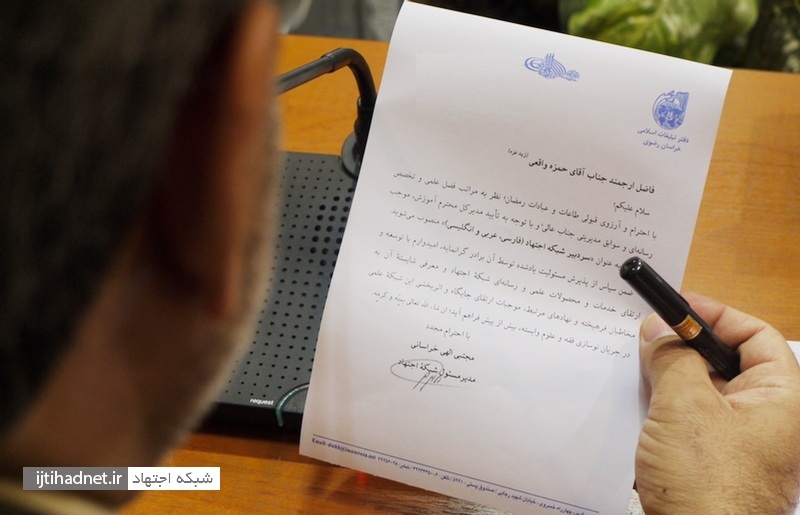 دفتر تبلیغات اسلامی
خراسان رضوی
فاضل ارجمند جناب آقای حمزه واقعی (زید عزه)
سلام علیکم؛
با احترام و آرزوی قبولی طاعات و عبادات رمضان؛ نظر به مراتب فضل علمی و تخصص
رسانه‌ای و سوابق مدیریتی جناب عالی؛ و با توجه به تأیید مدیرکل محترم آموزش، موجب
به عنوان «سردبیر شبکه اجتهاد (فارسی، عربی و انگلیسی)» منصوب می‌شوید.
ضمن سپاس از پذیرش مسئولیت یادشده توسط آن برادر گرانمایه، امیدوارم با توسعه و
ارتقای خدمات و محصولات علمی و رسانه‌ای شبکهٔ اجتهاد و معرفی شایستهٔ آن به
مخاطبان فرهیخته و نهادهای مرتبط، موجبات ارتقای جایگاه و اثربخشی این شبکهٔ علمی
در جریان نوسازی فقه و علوم وابسته، بیش از پیش فراهم آید؛ ان شاء الله تعالی بمنّه و کرمه.
با احترام مجدد
مجتبی الهی خراسانی
مدیرمسئول شبکهٔ اجتهاد
request
شبکه اجتهاد
ijtihadnet.ir